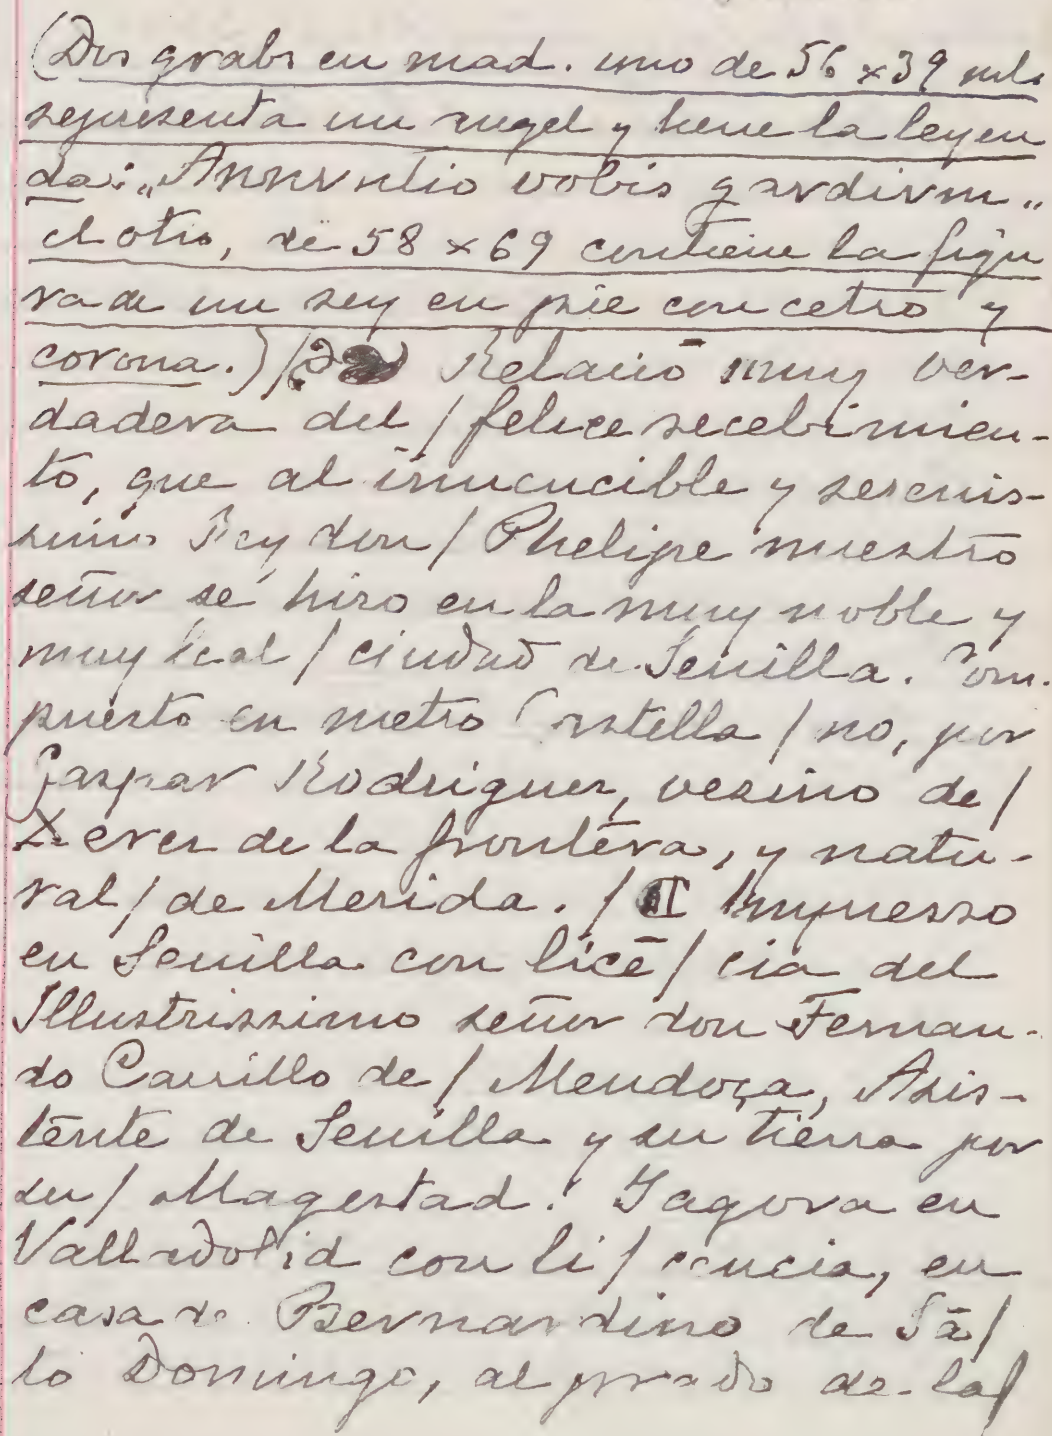 (Dos grabs en mad. uno de 56 x 39 mls
representa un angel y tiene la leyen
da: „Annvntio vobis gavdivm„
el otro, de 58 x 69 contiene la figu
ra de un rey en pie con cetro y
corona.) / Relaciō muy ver-
dadera del / felice recebimien-
to, que al inuencible y serenis-
simo Rey don / Phelipe nuestro
señor se hizo en la muy noble y
muy leal / ciudad de Seuilla. Com-
puesto en metro Castella / no, por
Gaspar Rodriguez, vezino de /
Xerez de la frontera, y natu-
ral / de Merida. / Impresso
en Seuilla con licē / cia del
Illustrissimo señor don Fernan-
do Carrillo de / Mendoça, Asis-
tente de Seuilla y su tierra por
su / Magestad. Y agora en
Valladolid con li / cencia, en
casa de Bernardino de Sā /
to Domingo, al prado de la /